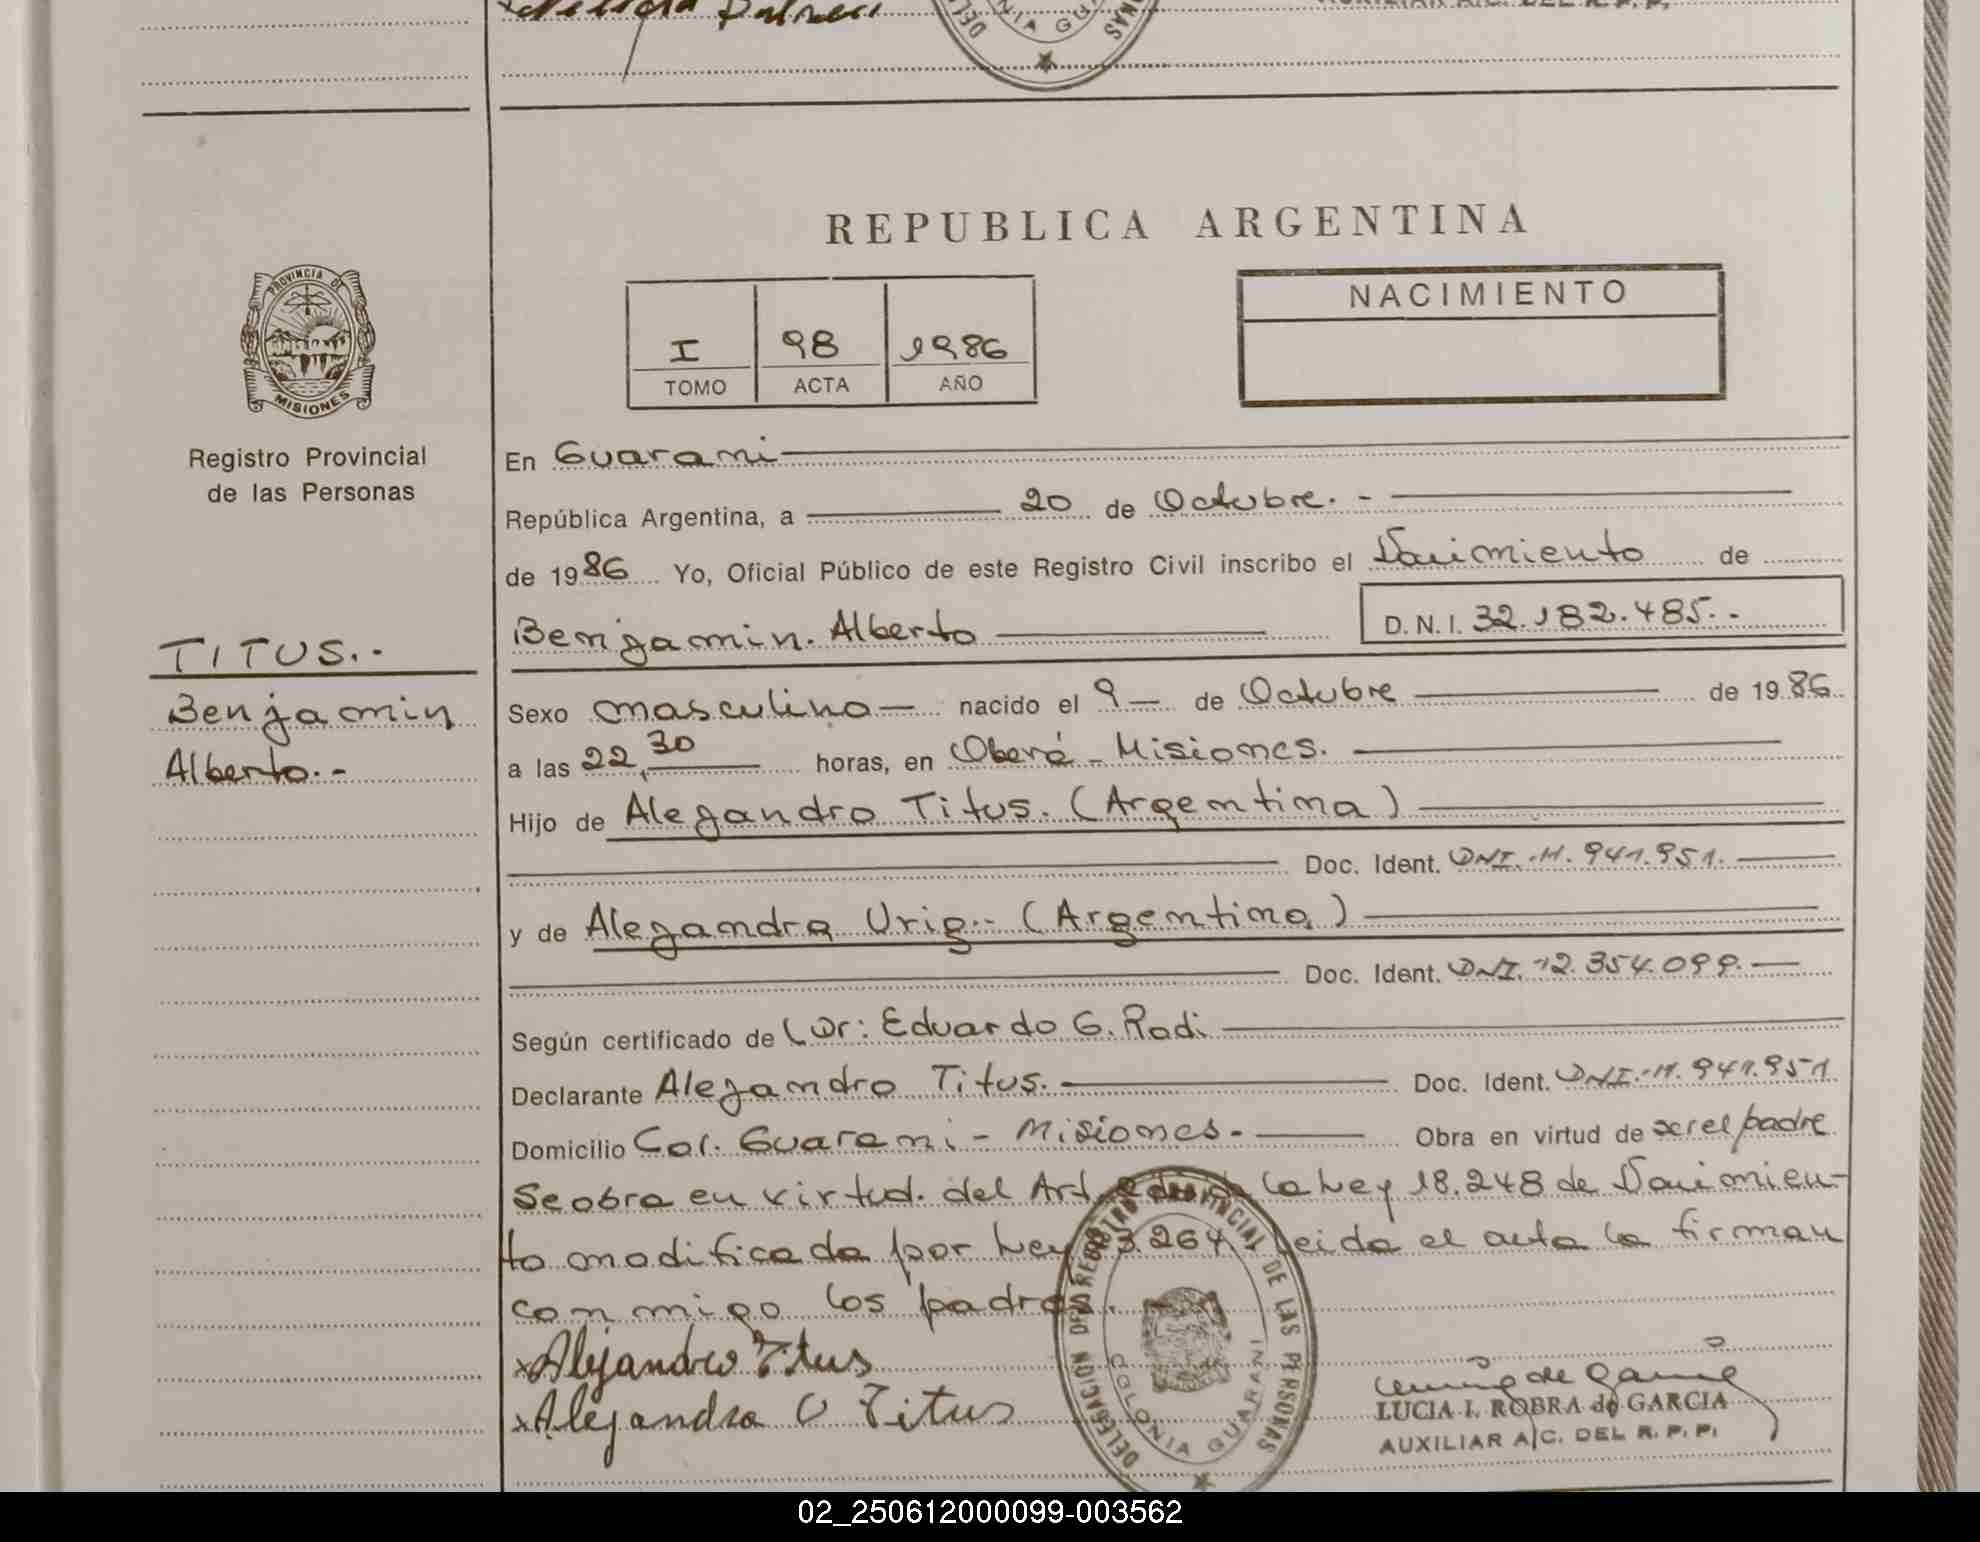 DEL
NIA GU
NAS
REPUBLICA ARGENTINA
PROVINCIA DE
MISIONES
I 98 1986
TOMO ACTA AÑO
NACIMIENTO
Registro Provincial
de las Personas
TITUS.-
Benjamin
Alberto.-
En Guarani
República Argentina, a 20 de Octubre.-
de 1986 Yo, Oficial Público de este Registro Civil inscribo el Nacimiento de
Benjamin. Alberto D.N.I. 32.182.485.-
Sexo masculino nacido el 9 de Octubre de 1986
a las 22,30 horas, en Oberá - Misiones.
Hijo de Alejandro Titus. (Argentina)
Doc. Ident. DNI. 11.941.951.
y de Alejandra Urig.- (Argentina)
Doc. Ident. DNI. 12.354.099.
Según certificado de Dr: Eduardo G. Radi
Declarante Alejandro Titus. Doc. Ident. DNI.- 11.941.951
Domicilio Col. Guarani - Misiones.- Obra en virtud de ser el padre
Se obra en virtud. del Art. de la Ley 18.248 de Nacimien-
to modificada por Ley 23.264. Leida el acta la firman
conmigo los padres.-
x Alejandro Titus
x Alejandra U Titus
DELEGACION DEL REGISTRO PROVINCIAL DE LAS PERSONAS
COLONIA GUARANI
LUCIA I. ROBRA de GARCIA
AUXILIAR A/C. DEL R.P.P.
02_250612000099-003562